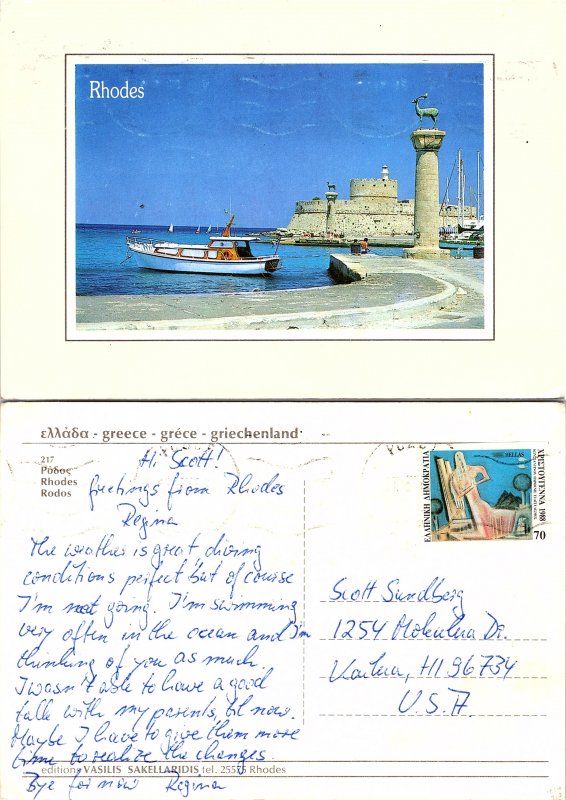 Rhodes
ελλάδα - greece - grèce - griechenland
217
Ρόδος
Rhodes
Rodos
Hi Scott!
Greetings from Rhodes
Regina
The weather is great, diving
conditions perfect but of course
I'm not going. I'm swimming
very often in the ocean and I'm
thinking of you as much.
I wasn't able to have a good
talk with my parents, til now.
Maybe I have to give them more
time to realize the changes.
Bye for now Regina
editions VASILIS SAKELLARIDIS tel. 25575 Rhodes
ΕΛΛΗΝΙΚΗ ΔΗΜΟΚΡΑΤΙΑ
HELLAS
ΧΡΙΣΤΟΥΓΕΝΝΑ 1988
70
Scott Sundberg
1254 Mokulua Dr.
Kailua, HI 96734
U.S.A.